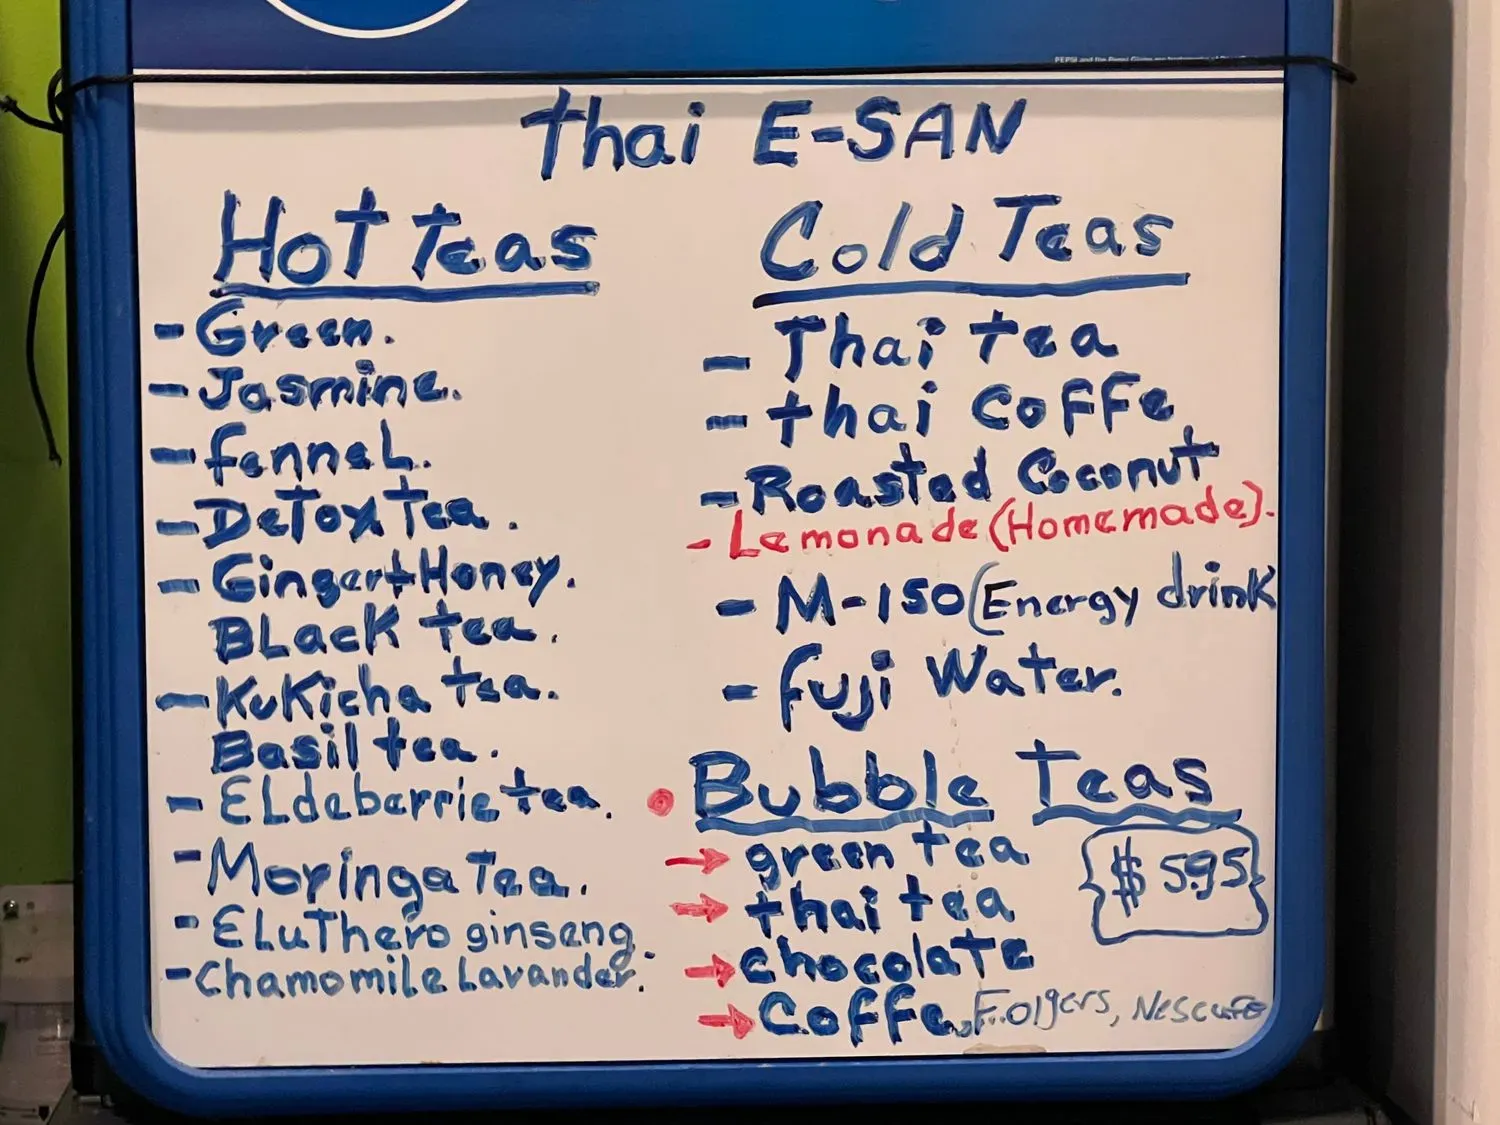 thai E-SAN
Hot Teas
- Green.
- Jasmine.
- fennel.
- Detox Tea.
- Ginger+Honey.
Black tea.
- Kukicha tea.
Basil tea.
- Eldeberrie tea.
- Moringa Tea.
- EluThero ginseng.
- Chamomile Lavander.
Cold Teas
- Thai tea
- thai Coffe
- Roasted Coconut
- Lemonade (Homemade).
- M-150 (Energy drink
- fuji Water.
• Bubble Teas
→ green tea
→ thai tea
$ 5.95
→ chocolate
→ Coffe, Folgers, Nescafe